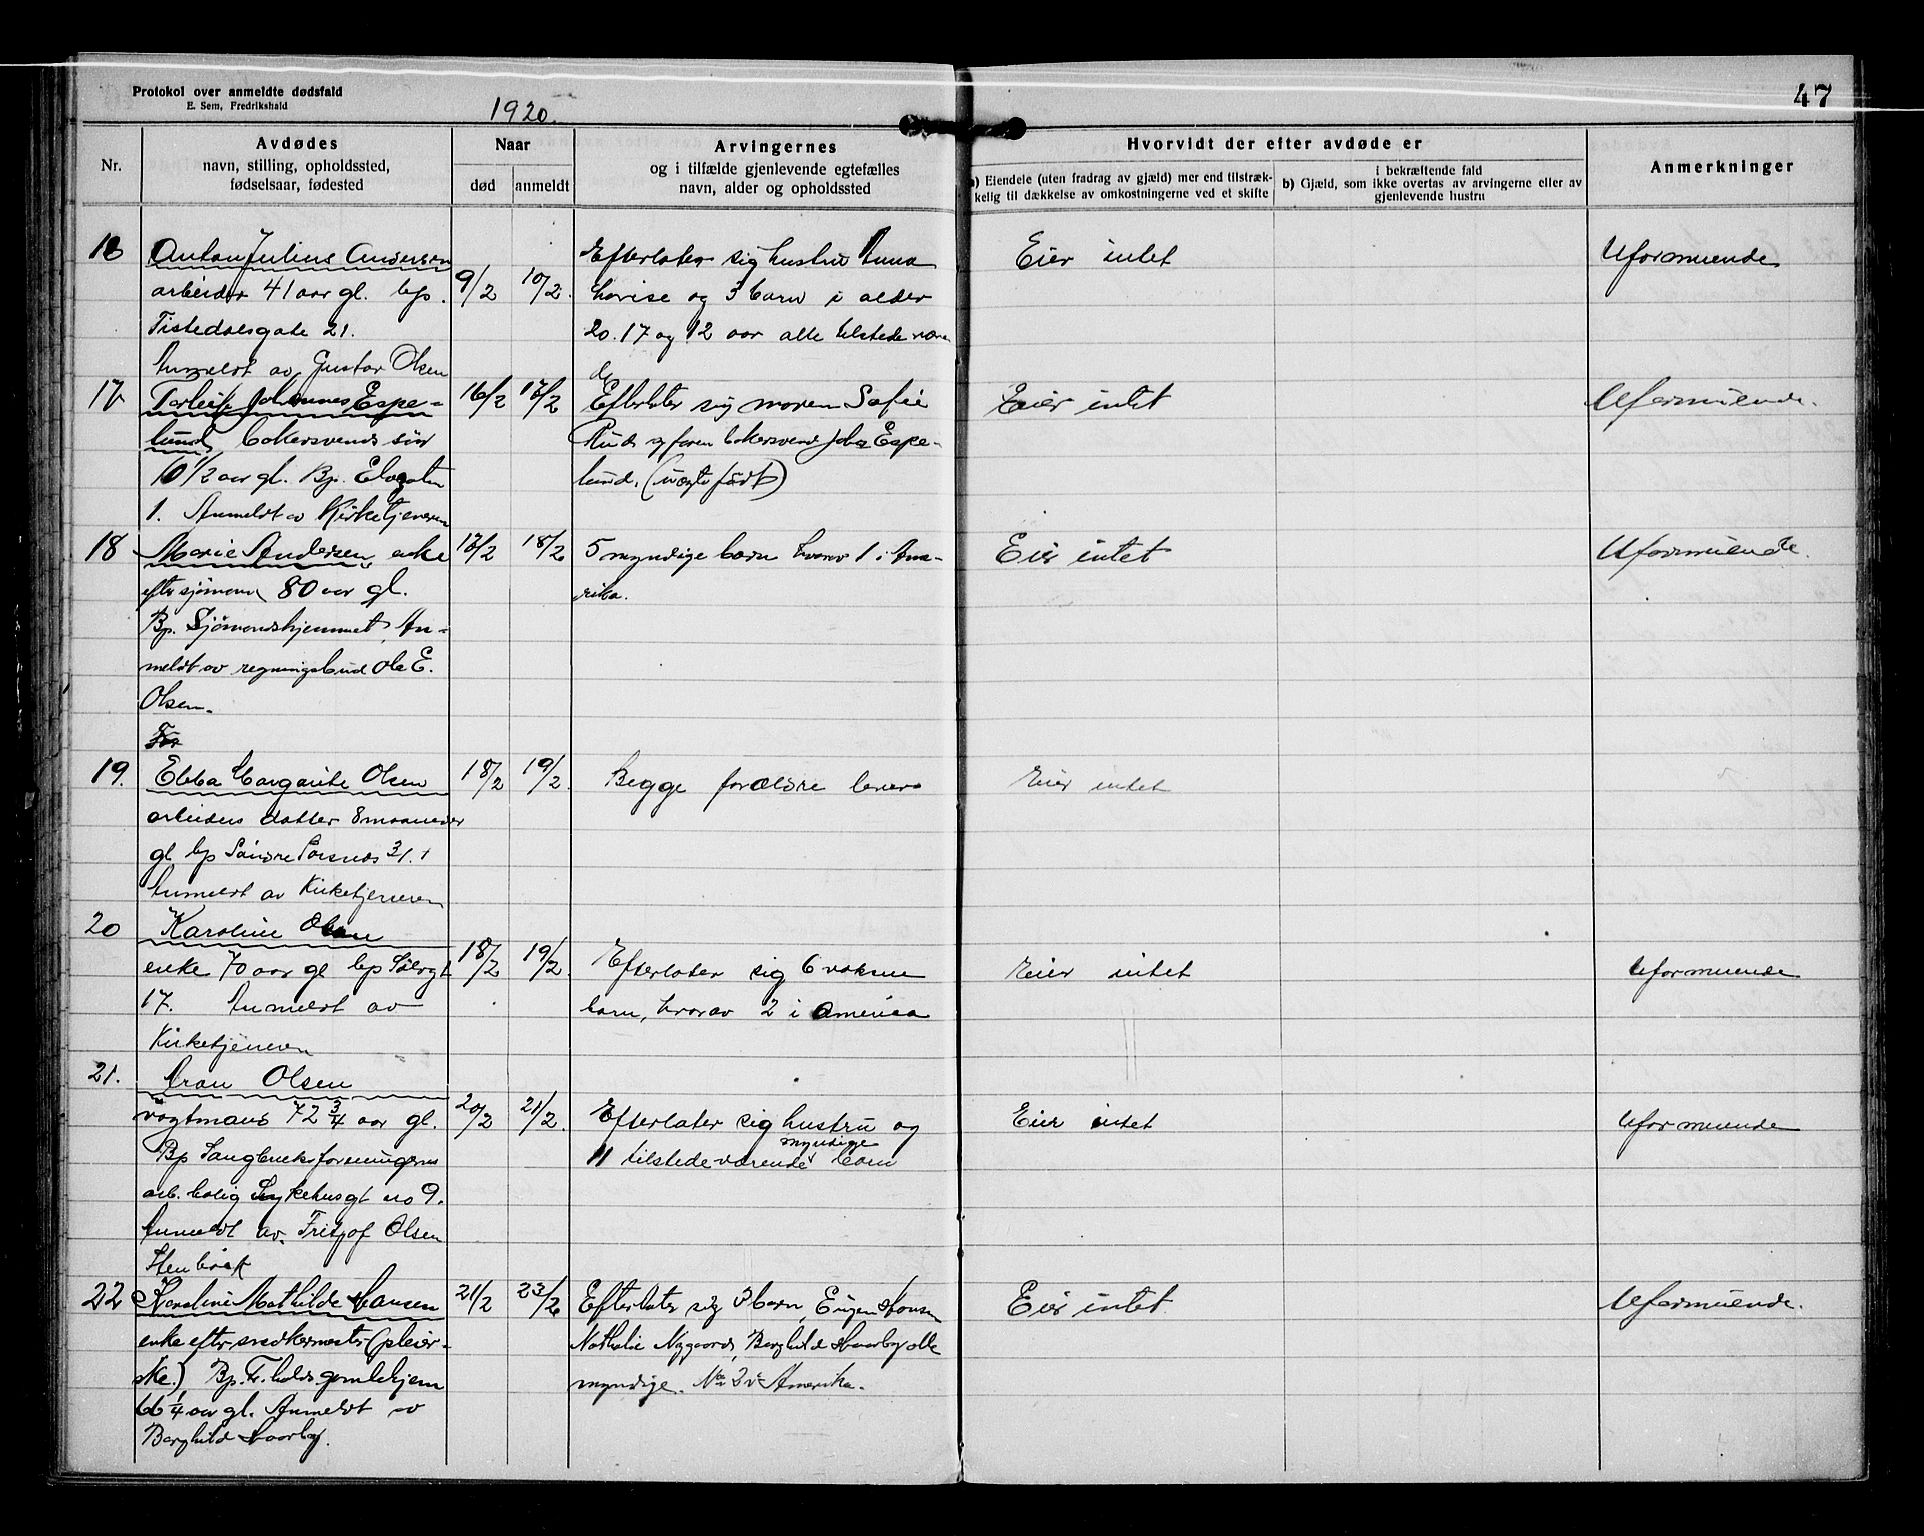 Protokol over anmeldte dødsfald
E. Sem, Fredrikshald
1920.
47
Nr.
Avdødes
navn, stilling, opholdssted,
fødselsaar, fødested
Naar
død
anmeldt
Arvingernes
og i tilfælde gjenlevende egtefælles
navn, alder og opholdssted
Hvorvidt der efter avdøde er
a) Eiendele (uten fradrag av gjæld) mer end tilstræk-
kelig til dækkelse av omkostningerne ved et skifte
i bekræftende fald
b) Gjæld, som ikke overtas av arvingerne eller av
gjenlevende hustru
Anmerkninger
16
Anton Julius Andersen
arbeider 41 aar gl. bp.
Tistedalsgate 21.
Anmeldt av Gustav Olsen
9/2
10/2.
Efterlater sig hustru Anna
Lovise og 3 barn i alder
20. 17 og 12 aar alle tilstedeværen
de
Eier intet
Uformuende
17
Torleif Johannes Espe-
lund bakersvends søn
10 1/2 aar gl. Bp. Elvegaten
1. Anmeldt av Kirketjeneren
16/2
17/2
Efterlater sig moren Sofie
Ruud og faren bakersvend Joh. Espe-
lund. (uægte født)
Eier intet
Uformuende.
18
Marie Andersen, enke
efter sjømand 80 aar gl.
Bp. Sjømandshjemmet. An-
meldt av regningsbud Ole E.
Olsen.
17/2
18/2
5 myndige barn hvorav 1 i Ame-
rika.
Eier intet
Uformuende.
19.
Ebba Margarite Olsen
arbeiders datter 8 maaneder
gl bp Søndre Sørsnes 31.1
Anmeldt av Kirketjeneren
18/2
19/2.
Begge forældre lever
Eier intet
20
Karoline Olsen
enke 70 aar gl bp Sølvgt
17. Anmeldt av
Kirketjeneren
18/2
19/2.
Efterlater sig 6 voksne
barn, hvorav 2 i America
Eier intet
Uformuende
21.
Aron Olsen
vægtmand 72 3/4 aar gl.
Bp Tangbruksforeningens
arb. bolig Sykehusgt no 9.
Anmeldt av. Fritjof Olsen
Stenbræk
20/2
21/2.
Efterlater sig hustru og
11 tilstedeværende myndige barn
Eier intet
Uformuende
22
Karoline Mathilde Hansen
enke efter snedkermester (pleier-
ske.) Bp. Fr. halds gamlehjem
66 1/4 aar gl. Anmeldt av
Borghild Haarby.
21/2
23/2
Efterlater sig 3 barn, Eugen Hansen
Nathalie Nygaard, Borghild Haarby alle
myndige. No 2 i Amerika.
Eier intet.
Uformuende.